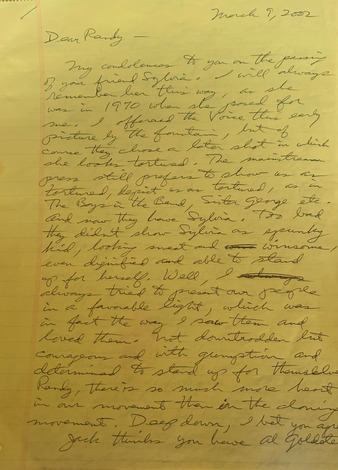 March 9, 2002
Dear Randy —
My condolences to you on the passing
of your friend Sylvia. I will always
remember her this way, as she
was in 1970 when she posed for
me. I offered the Voice this early
picture by the fountain, but of
course they chose a later shot in which
she looks tortured. The mainstream
press still prefers to show us as
tortured, depict us as tortured, as in
The Boys in the Band, Sister George etc.
and now they have Sylvia. Too bad
they didn't show Sylvia as a spunky
kid, looking sweet and winsome,
even dignified and able to stand
up for herself. Well, I always
always tried to present our people
in a favorable light, which was
in fact the way I saw them and
loved them. Not downtrodden but
courageous and with gumption and
determined to stand up for themselves
Randy, there's so much more heart
in our movement than in the cloning
movement. Deep down, I bet you agr
Jack thinks you have al